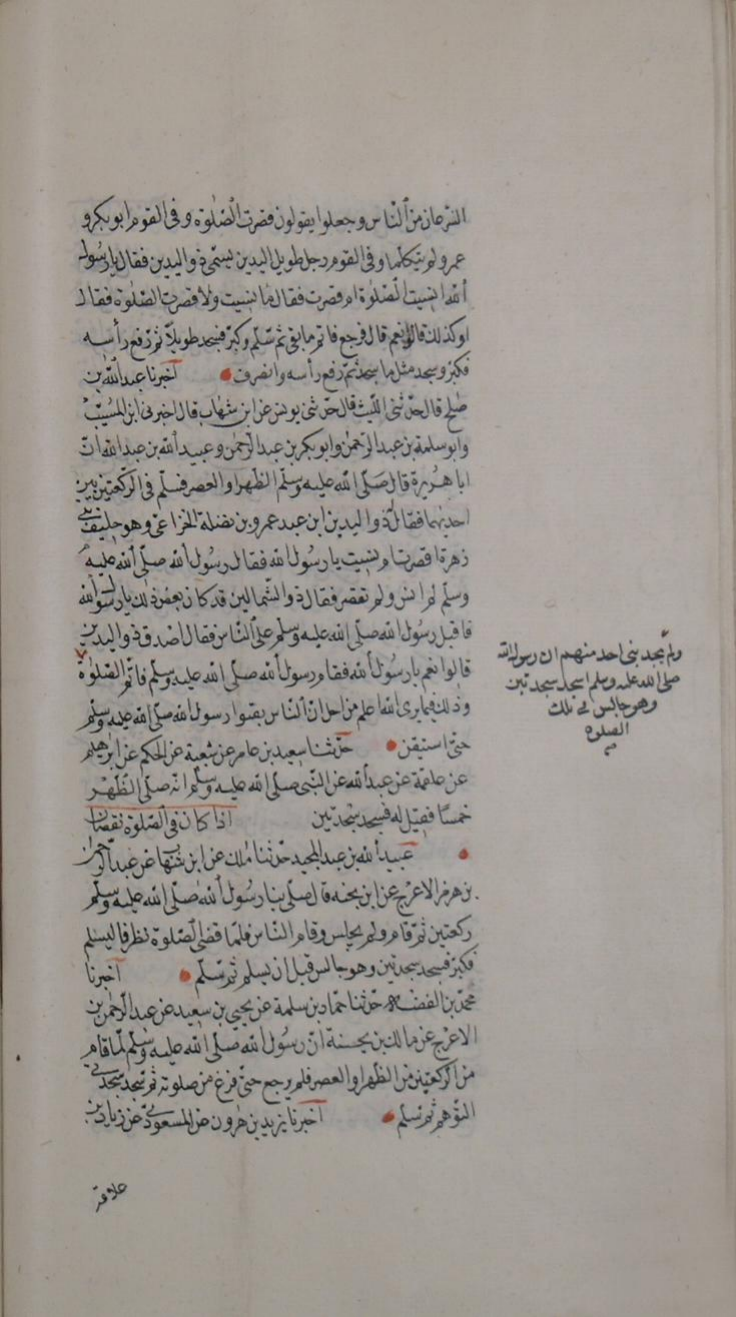 السرعان من الناس وجعلوا يقولون قصرت الصلوة وفي القوم ابو بكر و
عمر ولم يتكلما وفي القوم رجل طويل اليدين يسمى ذو اليدين فقال يا رسول
الله انسيت الصلوة ام قصرت فقال ما نسيت ولا قصرت الصلوة فقال
او كذلك قالوا نعم قال فرجع فاتم ما بقي ثم سلم وكبر فسجد طويلا ثم رفع رأسه
فكبر وسجد مثل ما سجد ثم رفع رأسه وانصرف اخبرنا عبد الله بن
صلح قال حدثني الليث قال حدثني يونس عن ابن شهاب قال اخبرني ابن المسيب
وابو سلمة بن عبد الرحمن وابو بكر بن عبد الرحمن وعبيد الله بن عبد الله ان
ابا هريرة قال صلى الله عليه وسلم الظهر او العصر فسلم في الركعتين من
احديهما فقال ذو اليدين ابن عبد عمرو بن نضلة الخزاعي وهو حليف بني
زهرة اقصرت ام نسيت يا رسول الله فقال رسول الله صلى الله عليه
وسلم لم انس ولم تقصر فقال ذو الشمالين قد كان بعض ذلك يا رسول الله
فاقبل رسول الله صلى الله عليه وسلم على الناس فقال اصدق ذو اليدين
قالوا نعم يا رسول الله فقام رسول الله صلى الله عليه وسلم فاتم الصلوة
وذلك فيما يرى الله اعلم من اجل ان الناس يقنوا رسول الله صلى الله عليه وسلم
حتى استيقن حدثنا سعيد بن عامر عن شعبة عن الحكم عن ابرهيم
عن علقمة عن عبد الله عن النبي صلى الله عليه وسلم انه صلى الظهر
خمسا فقيل له فسجد سجدتين اذا كان في الصلوة نقصان
عبيد الله بن عبد المجيد حدثنا ملك عن ابن شهاب عن عبد الرحمن
بن هرمز الاعرج عن ابن بحينه قال صلى بنا رسول الله صلى الله عليه وسلم
ركعتين ثم قام ولم يجلس وقام الناس فلما قضى الصلوة نظرنا ليسلم
فكبر فسجد سجدتين وهو جالس قبل ان يسلم ثم سلم اخبرنا
محمد بن الفضل حدثنا حماد بن سلمة عن يحيى بن سعيد عن عبد الرحمن بن
الاعرج عن مالك بن بحينة ان رسول الله صلى الله عليه وسلم لما قام
من الركعتين من الظهر او العصر فلم يرجع حتى فرغ من صلوته ثم سجد سجدتي
التوهم ثم سلم اخبرنا يزيد بن هرون عن المسعودي عن زياد بن
علاقة
ولم يحدثني احد منهم ان رسول الله
صلى الله عليه وسلم سجد سجدتين
وهو جالس في تلك
الصلوة